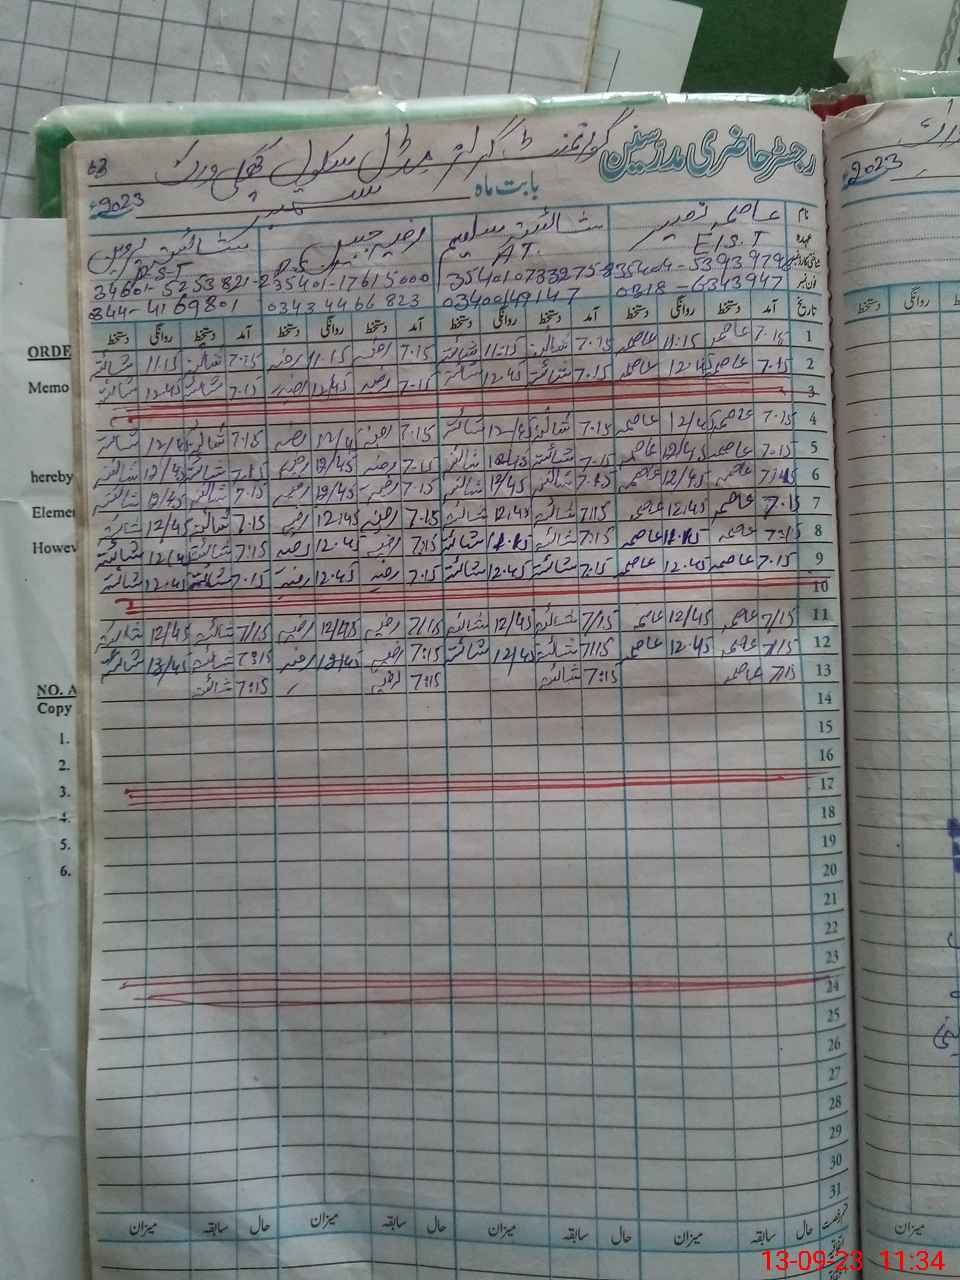 رجسٹر حاضری مدرسین گورنمنٹ گرلز مڈل سکول
63
بابت ماہ ستمبر 2023ء
نام عاصمہ نصیر شائستہ سلیم رضیہ جبیں شائستہ پروین
عہدہ E.S.T A.T. P.S.T
0318-6343947 03400149147 03434466823 0344-4169801
تاریخ آمد دستخط روانگی دستخط آمد دستخط روانگی دستخط آمد دستخط روانگی دستخط آمد دستخط روانگی دستخط
1 7.15 عاصمہ 11.15 عاصمہ 7.15 شائستہ 11.15 شائستہ 7.15 رضیہ 11.15 رضیہ 7.15 شائستہ 11.15 شائستہ
2 7.15 عاصمہ 12.45 عاصمہ 7.15 شائستہ 12.45 شائستہ 7.15 رضیہ 12/45 رضیہ 7.15 شائستہ 12.45 شائستہ
3
4 7.15 عاصمہ 12/45 عاصمہ 7.15 شائستہ 12/45 شائستہ 7.15 رضیہ 12/4 رضیہ 7.15 شائستہ 12/45 شائستہ
5 7.15 عاصمہ 12/45 عاصمہ 7.15 شائستہ 12/45 شائستہ 7.15 رضیہ 12/45 رضیہ 7.15 شائستہ 12/45 شائستہ
6 7.15 عاصمہ 12/45 عاصمہ 7.15 شائستہ 12/45 شائستہ 7.15 رضیہ 12/45 رضیہ 7.15 شائستہ 12/45 شائستہ
7 7.15 عاصمہ 12.45 عاصمہ 7:15 شائستہ 12.45 شائستہ 7.15 رضیہ 12:45 رضیہ 7.15 شائستہ 12/45 شائستہ
8 7:15 عاصمہ 12.45 عاصمہ 7:15 شائستہ 12.45 شائستہ 7:15 رضیہ 12.45 رضیہ 7:15 شائستہ 12/45 شائستہ
9 7.15 عاصمہ 12.45 عاصمہ 7.15 شائستہ 12.45 شائستہ 7.15 رضیہ 12.45 رضیہ 7.15 شائستہ 12.45 شائستہ
10
11 7/15 عاصمہ 12/45 عاصمہ 7/15 شائستہ 12/45 شائستہ 7/15 رضیہ 12/45 رضیہ 7/15 شائستہ 12/45 شائستہ
12 7/15 عاصمہ 12.45 عاصمہ 7/15 شائستہ 12/45 شائستہ 7:15 رضیہ 12/45 رضیہ 7:15 شائستہ 12/45 شائستہ
13 7/15 عاصمہ 7:15 شائستہ 7:15 رضیہ 7:15 شائستہ
14
15
16
17
18
19
20
21
22
23
24
25
26
27
28
29
30
31
حال سابقہ میزان حال سابقہ میزان حال سابقہ میزان حال سابقہ میزان
ORDE
Memo
hereby
Elemen
Howev
NO. A
Copy
1.
2.
3.
4.
5.
6.
2023ء
دستخط روانگی
میزان
13-09-23 11:34